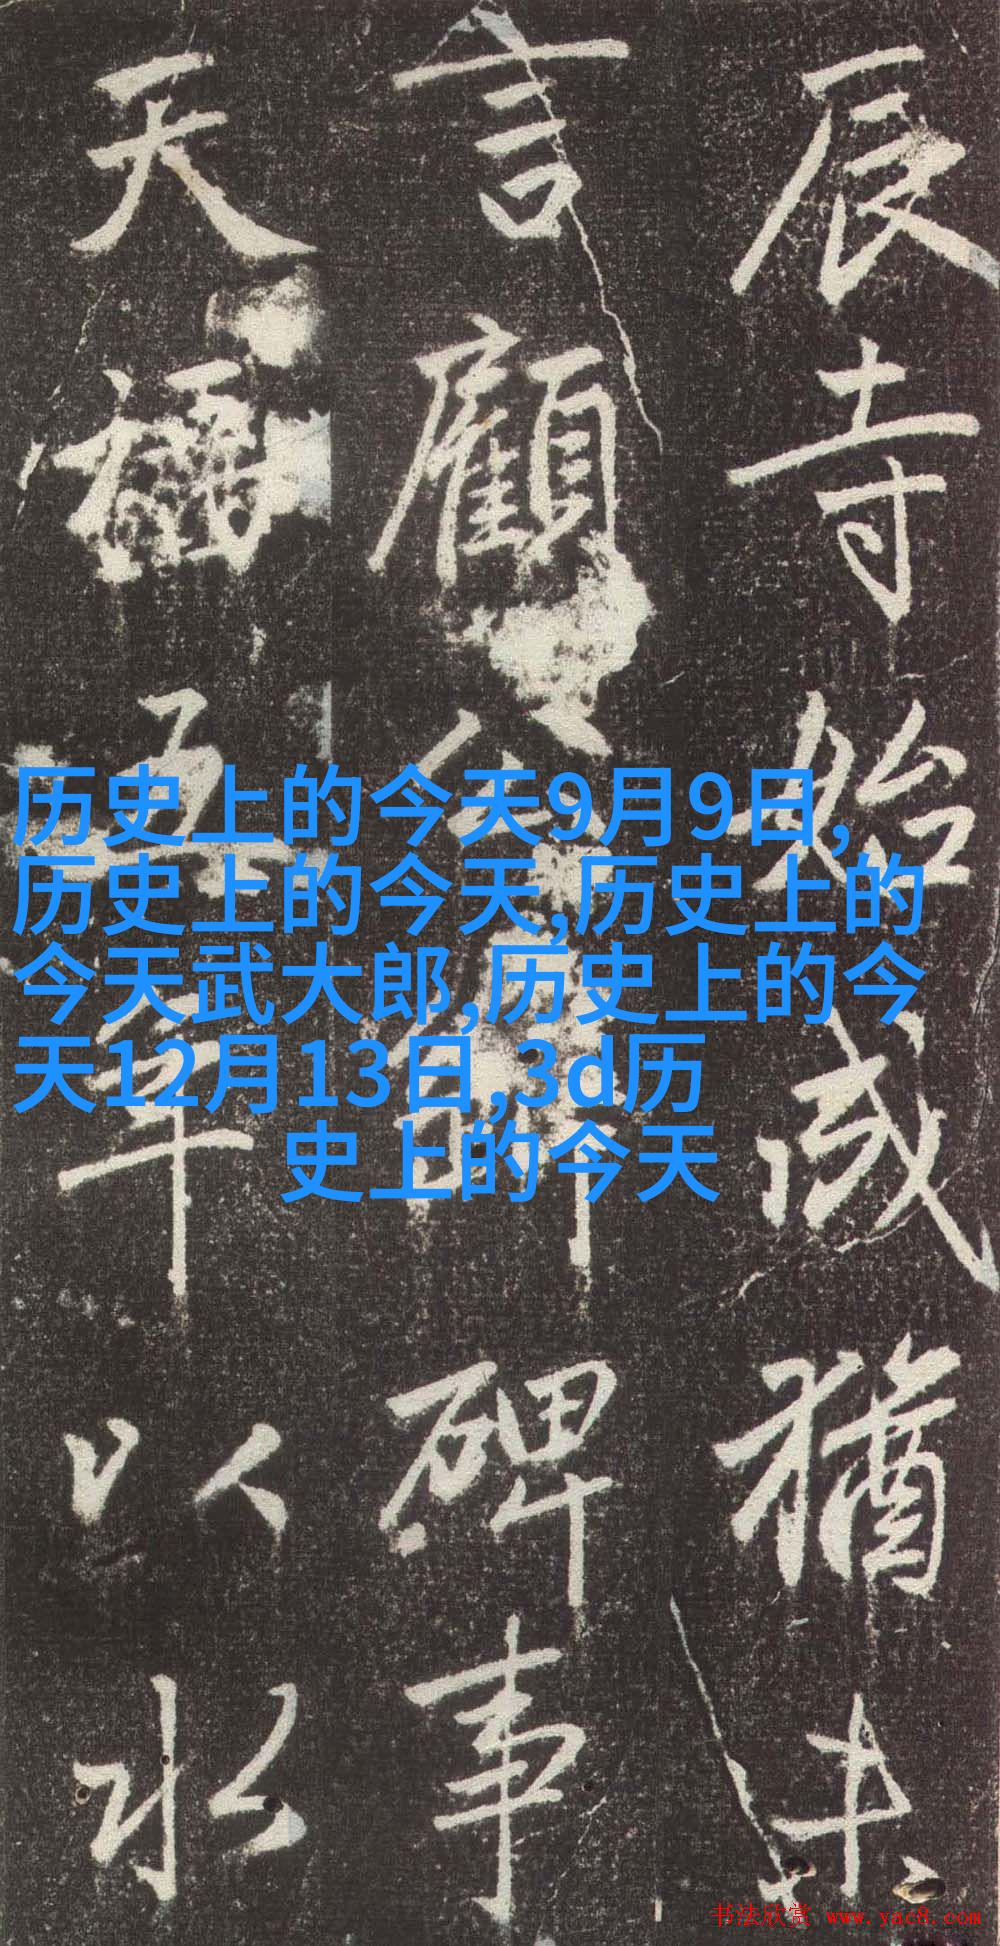 辰寺始猶
言顧碑事
天年以水
历史上的今天9月9日,
历史上的今天,历史上的
今天武大郎,历史上的今
天12月13日,3d历
史上的今天
书法欣赏 www.yac8.com